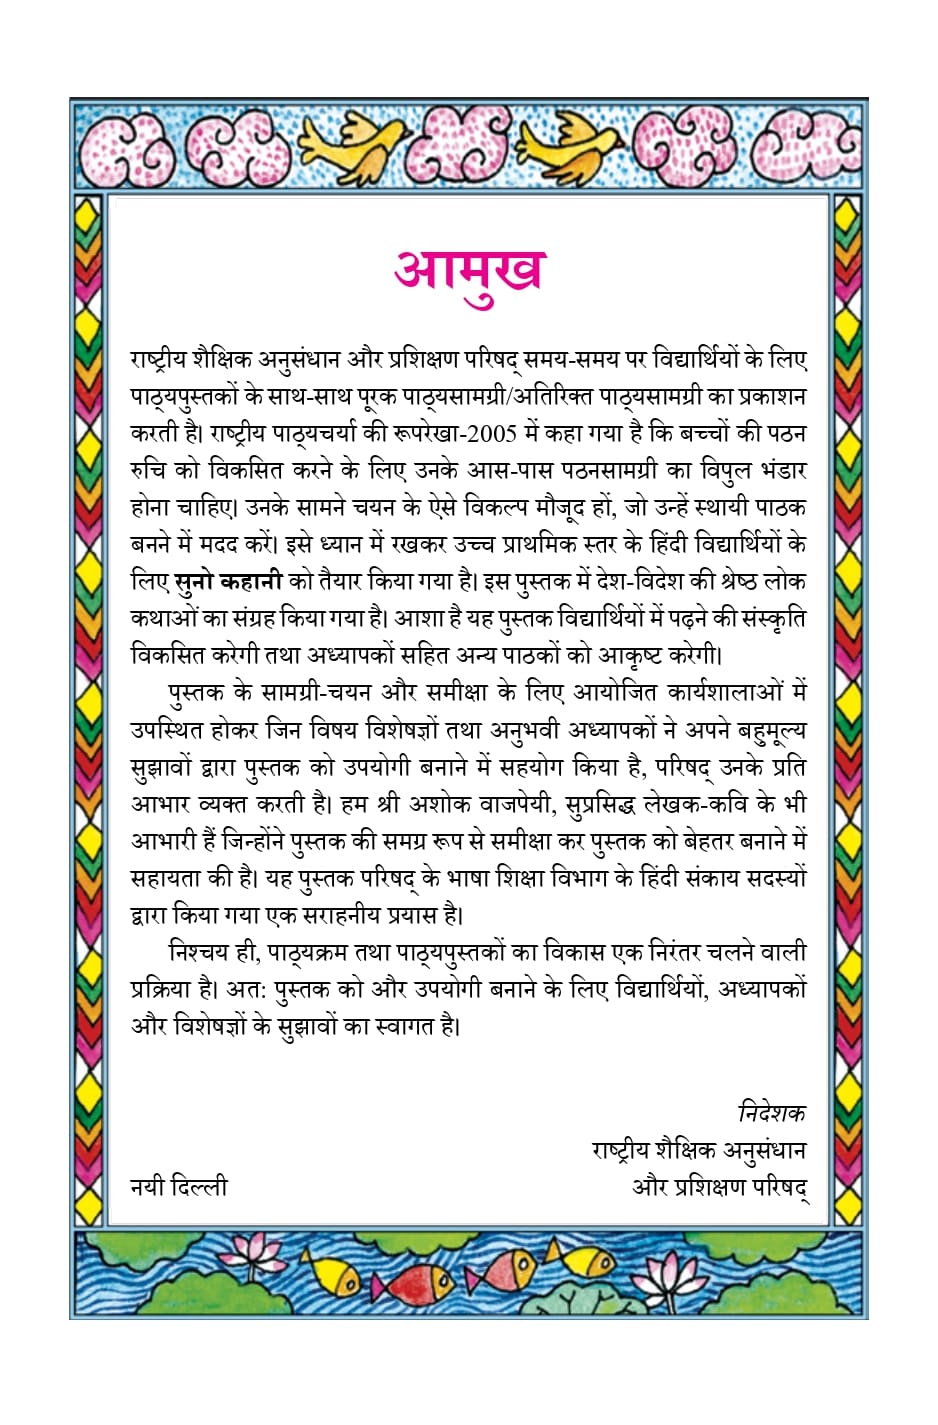 आमुख
राष्ट्रीय शैक्षिक अनुसंधान और प्रशिक्षण परिषद् समय-समय पर विद्यार्थियों के लिए
पाठ्यपुस्तकों के साथ-साथ पूरक पाठ्यसामग्री/अतिरिक्त पाठ्यसामग्री का प्रकाशन
करती है। राष्ट्रीय पाठ्यचर्या की रूपरेखा-2005 में कहा गया है कि बच्चों की पठन
रुचि को विकसित करने के लिए उनके आस-पास पठनसामग्री का विपुल भंडार
होना चाहिए। उनके सामने चयन के ऐसे विकल्प मौजूद हों, जो उन्हें स्थायी पाठक
बनने में मदद करें। इसे ध्यान में रखकर उच्च प्राथमिक स्तर के हिंदी विद्यार्थियों के
लिए सुनो कहानी को तैयार किया गया है। इस पुस्तक में देश-विदेश की श्रेष्ठ लोक
कथाओं का संग्रह किया गया है। आशा है यह पुस्तक विद्यार्थियों में पढ़ने की संस्कृति
विकसित करेगी तथा अध्यापकों सहित अन्य पाठकों को आकृष्ट करेगी।
पुस्तक के सामग्री-चयन और समीक्षा के लिए आयोजित कार्यशालाओं में
उपस्थित होकर जिन विषय विशेषज्ञों तथा अनुभवी अध्यापकों ने अपने बहुमूल्य
सुझावों द्वारा पुस्तक को उपयोगी बनाने में सहयोग किया है, परिषद् उनके प्रति
आभार व्यक्त करती है। हम श्री अशोक वाजपेयी, सुप्रसिद्ध लेखक-कवि के भी
आभारी हैं जिन्होंने पुस्तक की समग्र रूप से समीक्षा कर पुस्तक को बेहतर बनाने में
सहायता की है। यह पुस्तक परिषद् के भाषा शिक्षा विभाग के हिंदी संकाय सदस्यों
द्वारा किया गया एक सराहनीय प्रयास है।
निश्चय ही, पाठ्यक्रम तथा पाठ्यपुस्तकों का विकास एक निरंतर चलने वाली
प्रक्रिया है। अत: पुस्तक को और उपयोगी बनाने के लिए विद्यार्थियों, अध्यापकों
और विशेषज्ञों के सुझावों का स्वागत है।
निदेशक
राष्ट्रीय शैक्षिक अनुसंधान
नयी दिल्ली और प्रशिक्षण परिषद्